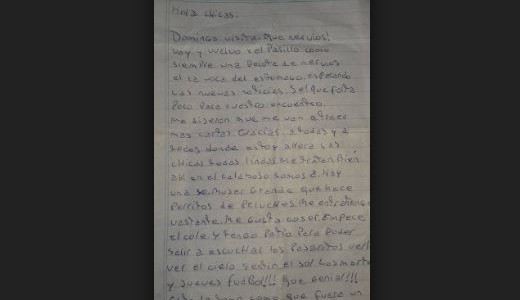 Hola chicas:
Domingo visita. Que nervios!
voy y vuelvo x el Pasillo como
siempre una Pelota de nervios
el la voca del estomago. esperando
las nuevas noticias. Se que falta
Poco Para nuestro encuentro.
Me dijeron que me van a traer
mas cartas. Gracias. a todas y a
todos donde estoy ahora las
chicas todas lindas Me tratan Bien
en el calaboso somos 2. Hay
una Mujer Grande que hace
Perritos de Peluches. Me entretengo
vastante. Me Gusta coser Empece
el cole y tengo Patio Para Poder
salir a escuchar los Pajaritos
ver el cielo sentir el sol. Los martes
y Jueves futbol!!! Que Genial!!!
como que fuera un